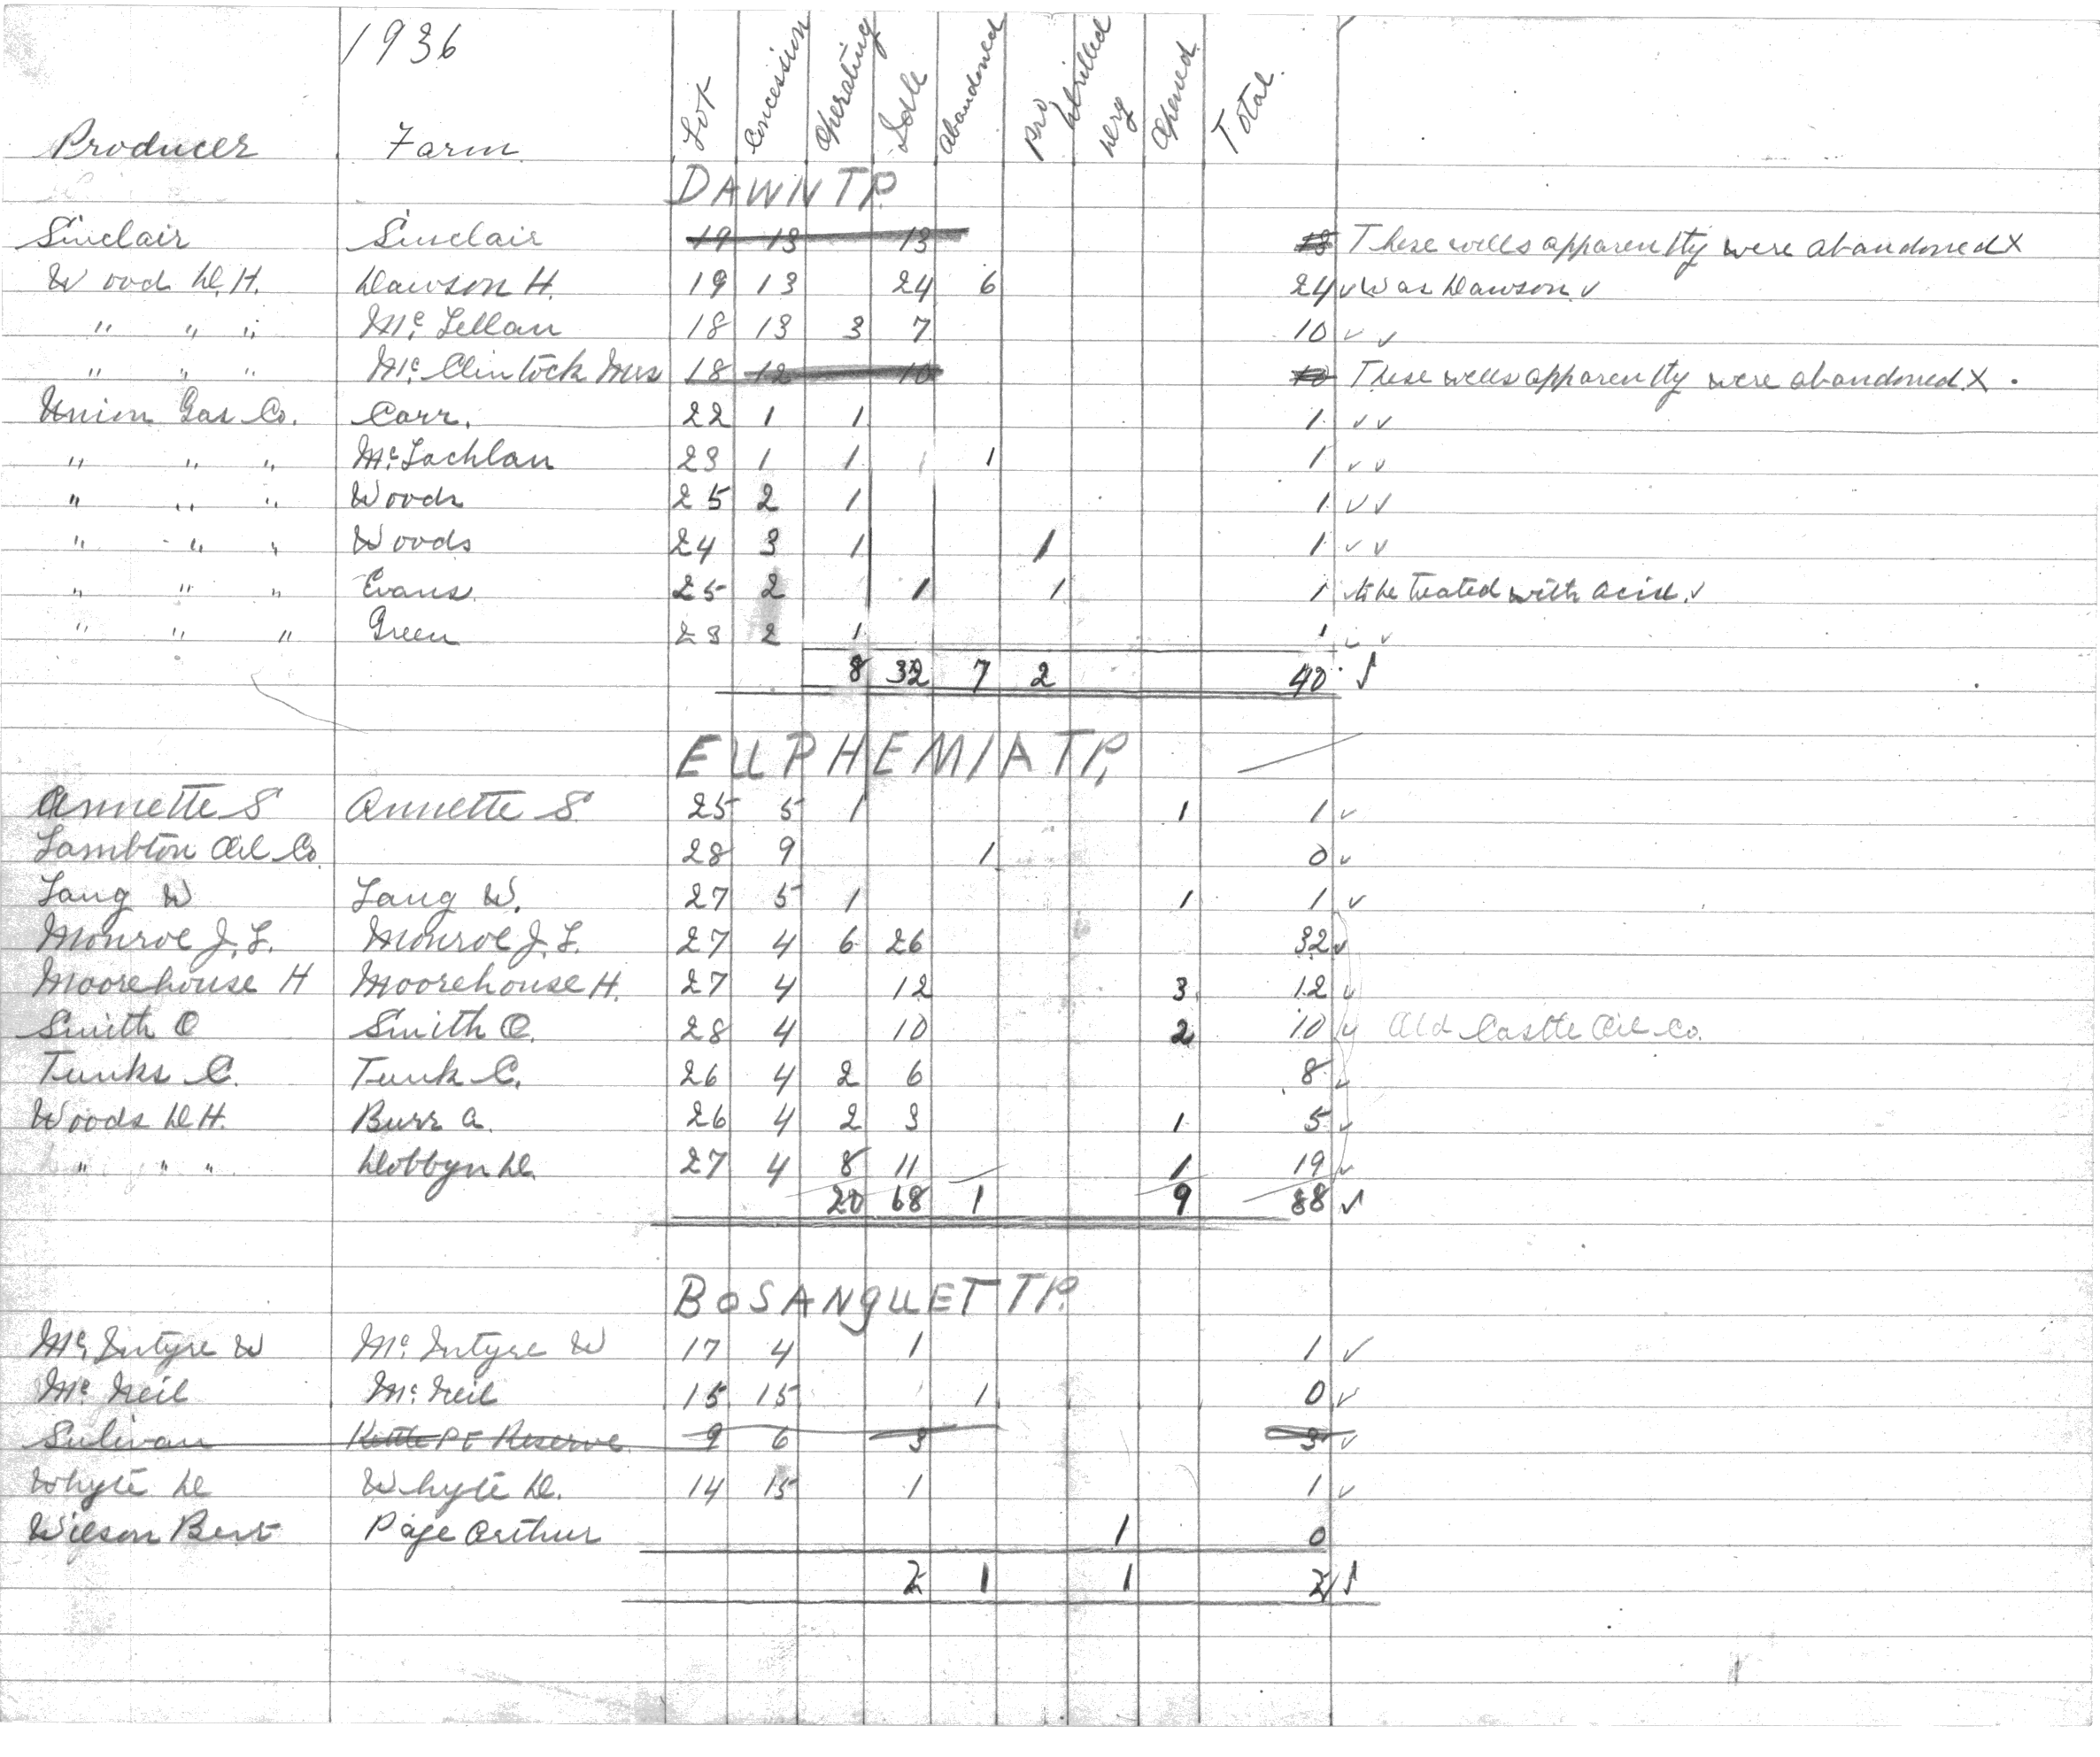 1936
Producer Farm Lot Concession Operating Idle Abandoned Pro Drilled Dry Opened Total
DAWN TP.
Sinclair Sinclair 19 13 13 13 These wells apparently were abandoned X
Wood D.H. Dawson H. 19 13 24 6 24 ✓ Was Dawson ✓
" " " Mc Lellan 18 13 3 7 10 ✓ ✓
" " " Mc Clintock Mrs 18 12 10 10 These wells apparently were abandoned. X .
Union Gas Co. Carr. 22 1 1 1 ✓ ✓
" " " Mc Lachlan 23 1 1 1 1 ✓ ✓
" " " Woods 25 2 1 1 ✓ ✓
" " " Woods 24 3 1 1 1 ✓ ✓
" " " Evans. 25 2 1 1 1 to be treated with acid. ✓
" " " Green 23 2 1 1 ✓ ✓
8 32 7 2 40 ✓
EUPHEMIA TP.
Annette S Annette S. 25 5 1 1 1 ✓
Lambton Oil Co. 28 9 1 0 ✓
Lang W Lang W. 27 5 1 1 1 ✓
Monroe J.L. Monroe J.L. 27 4 6 26 32 ✓
Moorehouse H Moorehouse H. 27 4 12 3 12 ✓
Smith O Smith O. 28 4 10 2 10 ✓ Old Castle Oil Co.
Tunks C. Tunk C. 26 4 2 6 8 ✓
Woods D.H. Burr A. 26 4 2 3 1 5 ✓
" " " Dobbyn D. 27 4 8 11 1 19 ✓
20 68 1 9 88 ✓
BOSANQUET TP.
Mc Intyre W Mc Intyre W 17 4 1 1 ✓
Mc Neil Mc Neil 15 15 1 0 ✓
Sulivan Kettle Pt Reserve 9 6 3 3 ✓
Whyte D Whyte D. 14 15 1 1 ✓
Wilson Bert Page Arthur 1 0
2 1 1 2 ✓